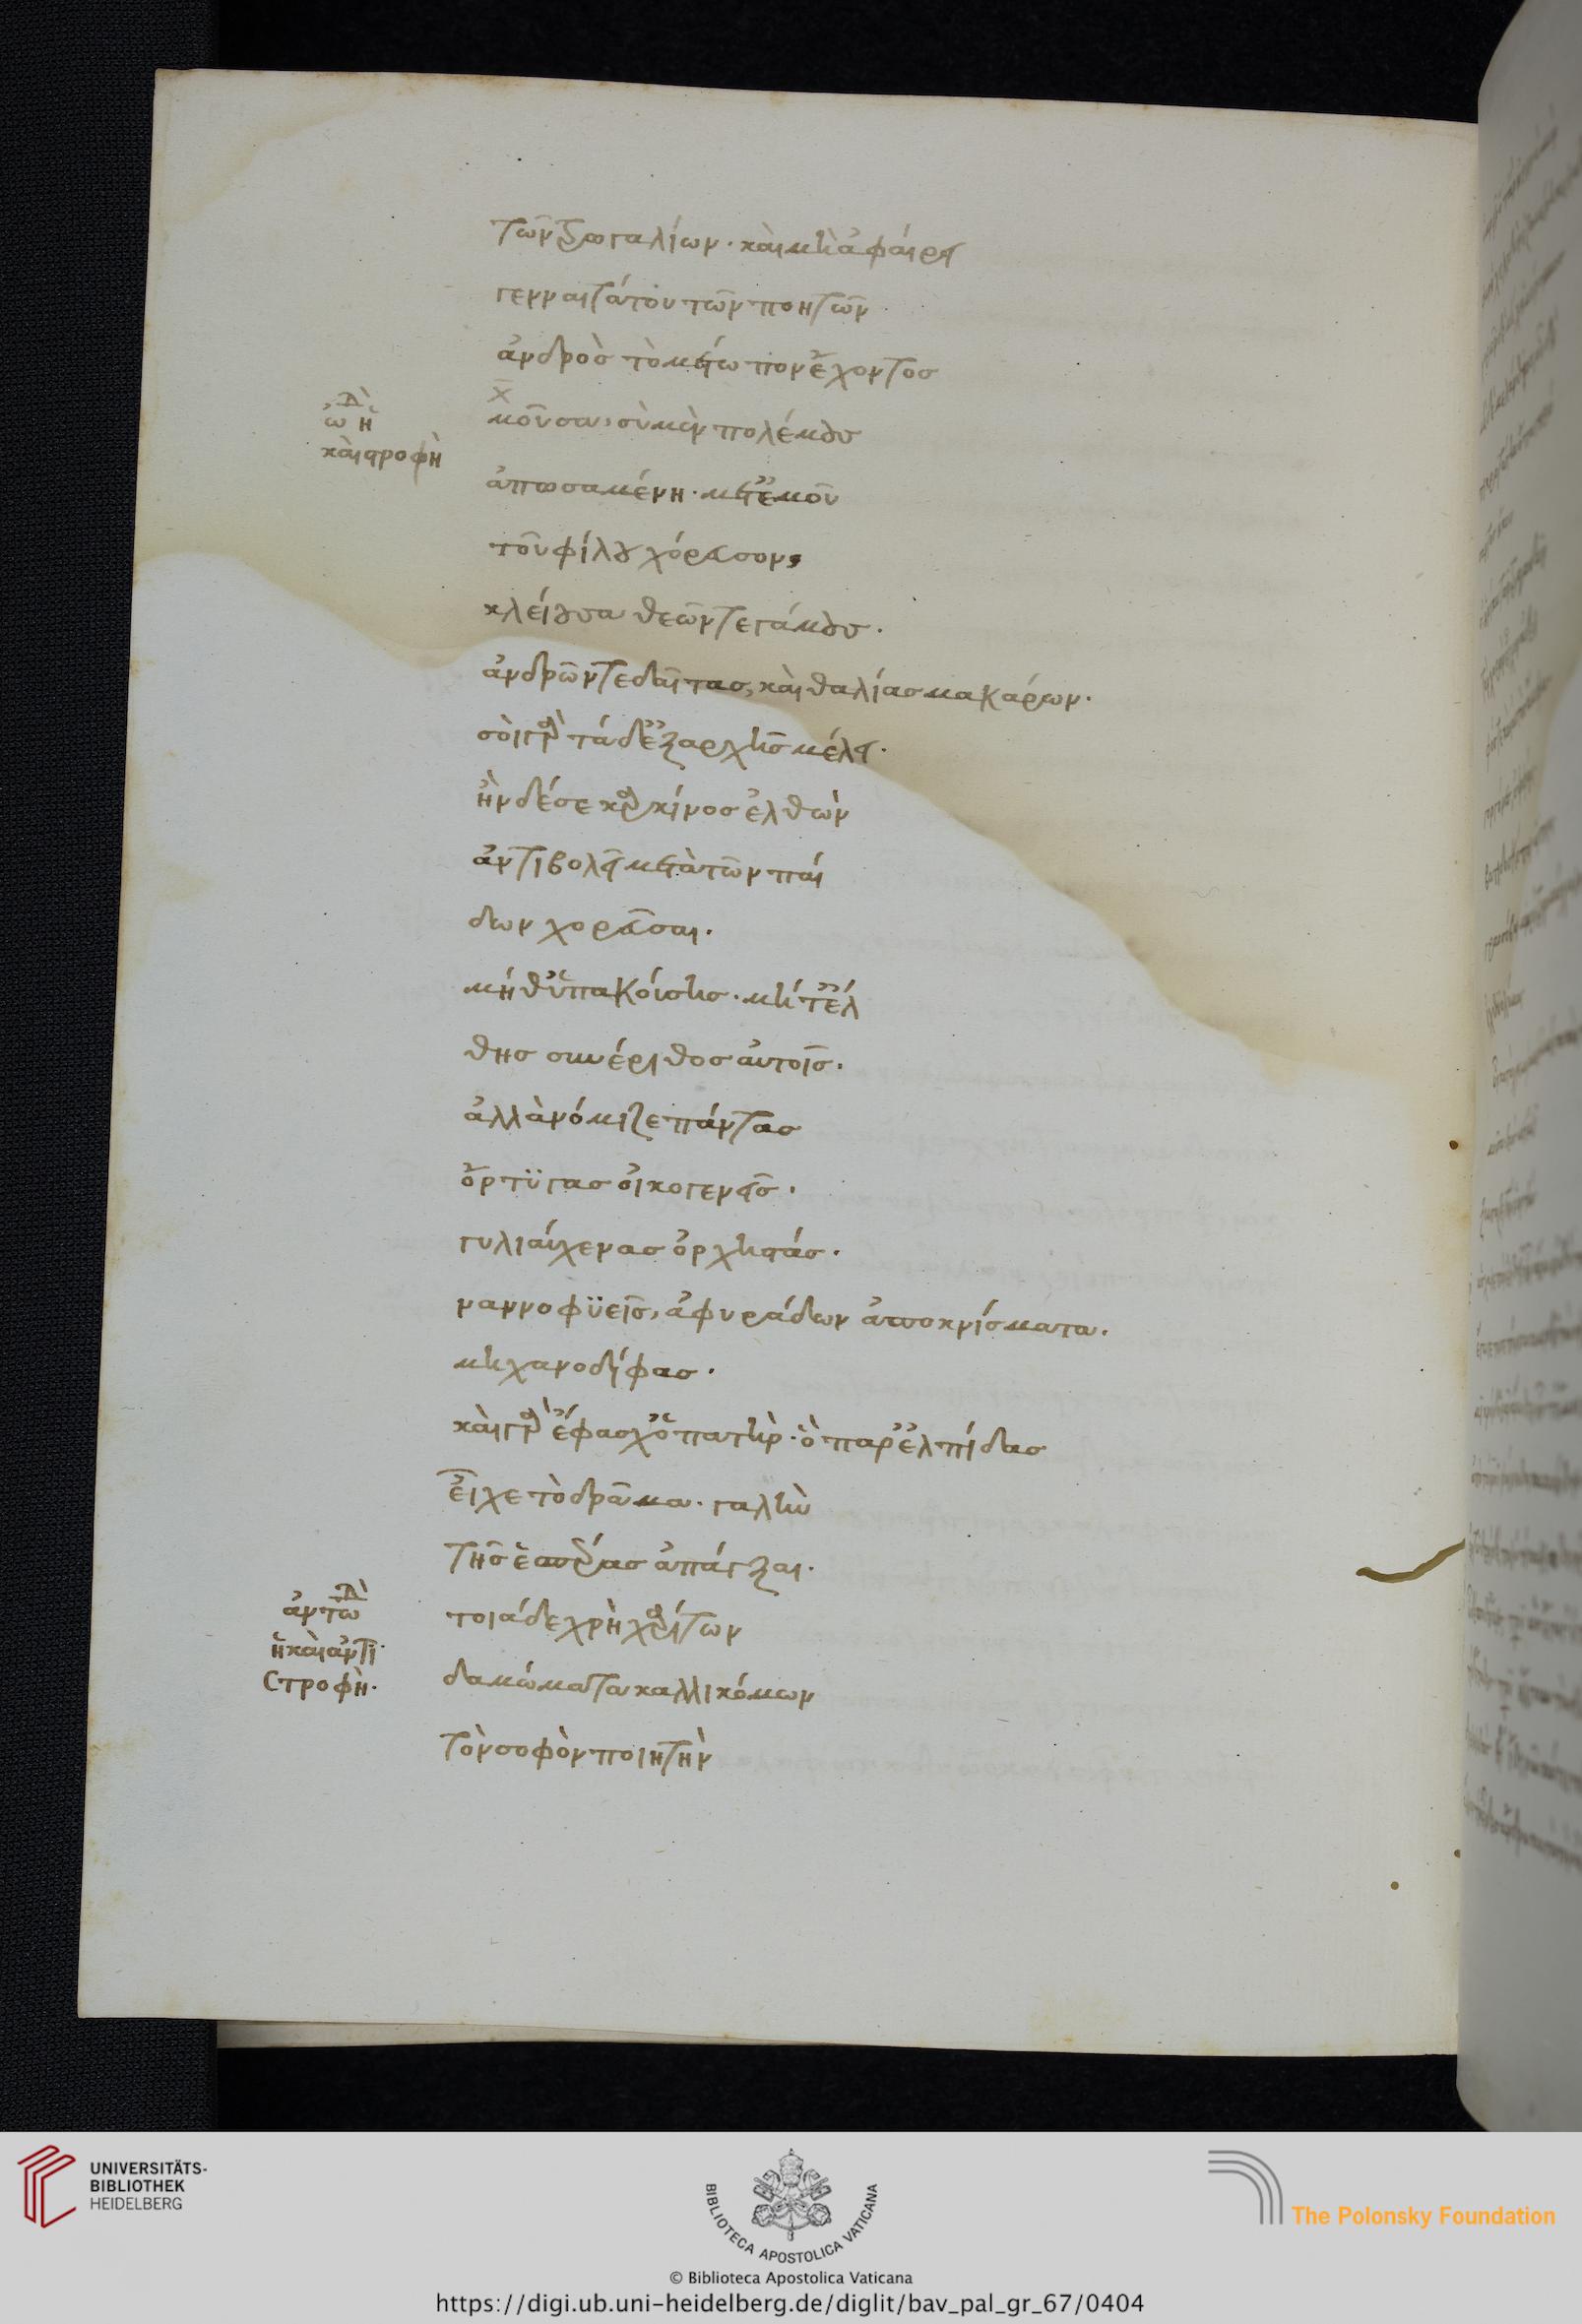 τῶν τρωγαλίων· καὶ μὴ ἀφαίρει
γενναιτάτου τῶν ποητῶν·
ἀνδρὸς τὸ μέτωπον ἔχοντος
ᾠδὴ ἢ
καὶ στροφὴ
χ
μοῦσα, σὺ μὲν πολέμους
ἀπωσαμένη· μετ' ἐμοῦ
τοῦ φίλου χόρευσον,
κλείουσα θεῶν τε γάμους·
ἀνδρῶν τε δαῖτας, καὶ θαλίας μακάρων·
σοὶ γὰρ τάδ' ἐξαρχῆς μέλει·
ἢν δέ σε καρκίνος ἐλθὼν
ἀντιβολεῖ μετὰ τῶν παί
δων χορεῦσαι·
μήθ' ὑπακούσης· μήτ' ἔλ
θης συνέριθος αὐτοῖς·
ἀλλὰ νόμιζε πάντας
ὄρτϋγας οἰκογενεῖς·
γυλιαύχενας ὀρχηστάς·
ναννοφϋεῖς, σφυράδων ἀποκνίσματα·
μηχανοδίφας·
καὶ γὰρ ἔφασχ' ὁ πατὴρ· ὃ παρ' ἐλπίδας
εἶχε τὸ δρᾶμα· γαλῆν
τῆς ἑσπέρας ἀπάγξαι·
ἀντῳδὴ
ἢ καὶ ἀντι
στροφὴ·
τοιάδε χρὴ χαρίτων
δαμώματα καλλικόμων
τὸν σοφὸν ποιητὴν
UNIVERSITÄTS-
BIBLIOTHEK
HEIDELBERG
BIBLIOTECA APOSTOLICA VATICANA
The Polonsky Foundation
© Biblioteca Apostolica Vaticana
https://digi.ub.uni-heidelberg.de/diglit/bav_pal_gr_67/0404